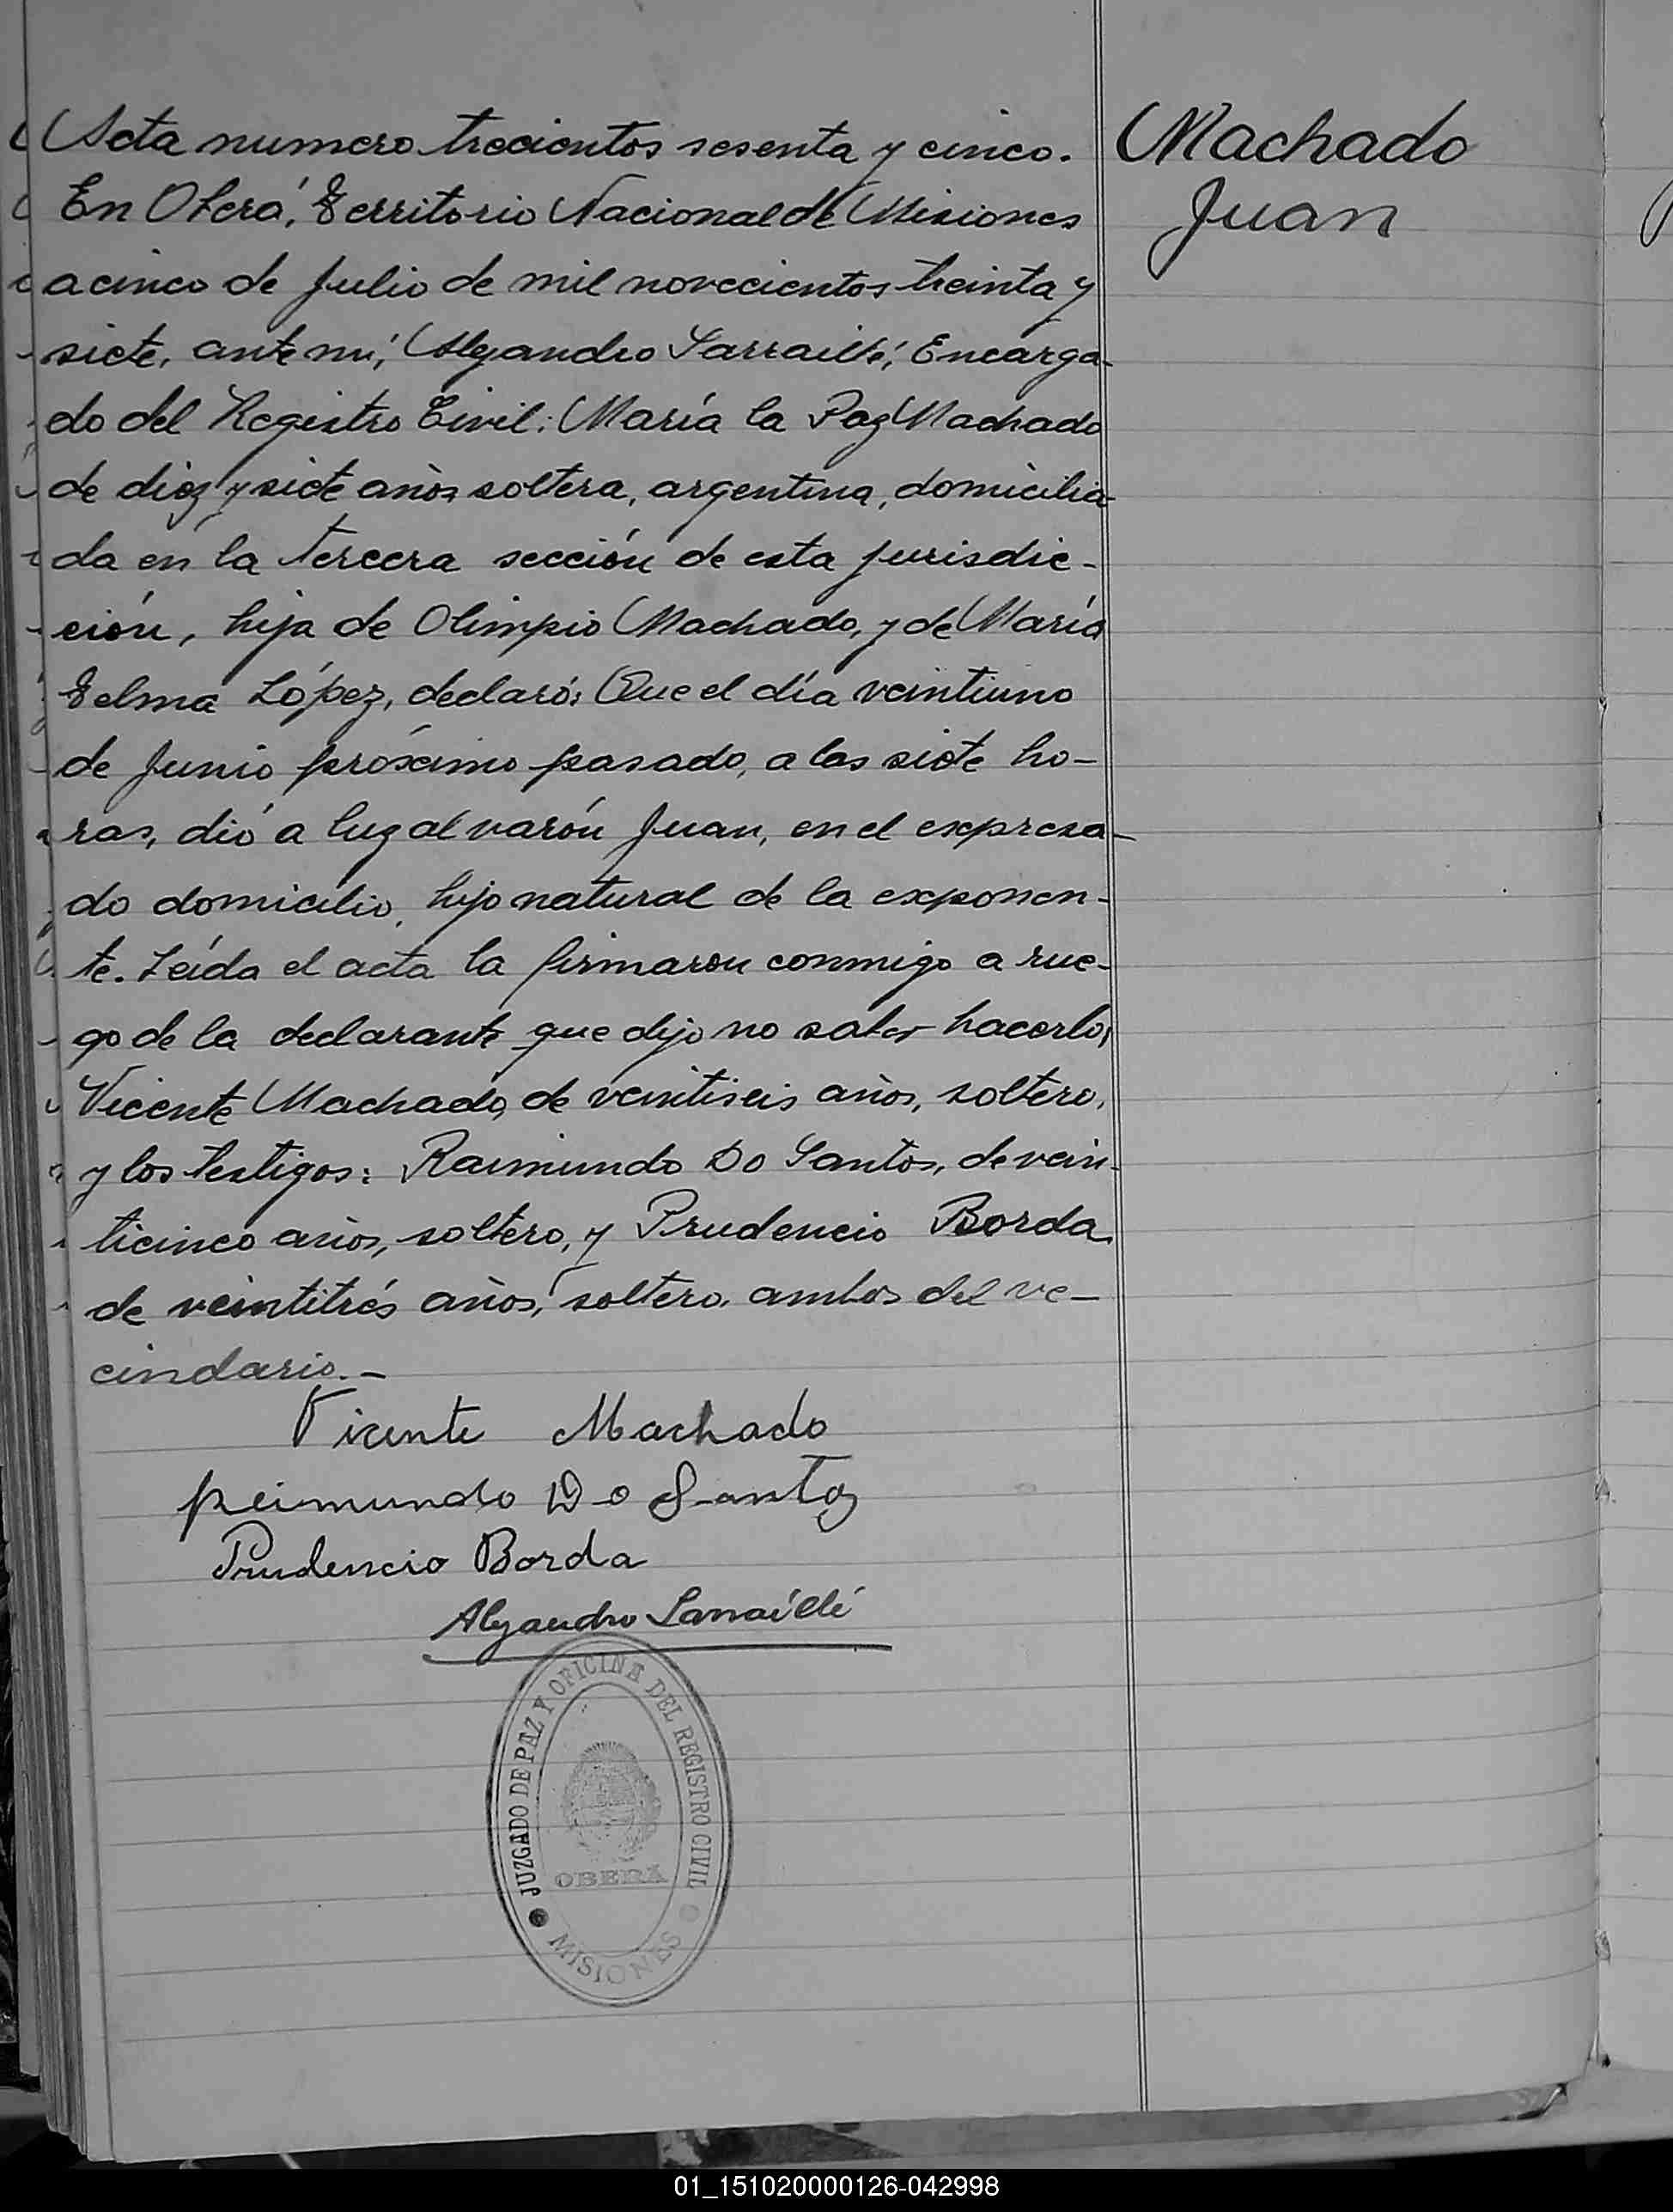 Acta numero trecientos sesenta y cinco.
En Oberá, Territorio Nacional de Misiones
a cinco de Julio de mil novecientos treinta y
siete, ante mí, Alejandro Sarraillé, Encarga-
do del Registro Civil: María la Paz Machado
de diez y siete años soltera, argentina, domicilia-
da en la tercera sección de esta jurisdic-
ción, hija de Olimpio Machado, y de María
Telma López, declaró: Que el día veintiuno
de Junio próximo pasado, a las siete ho-
ras, dió a luz al varón Juan, en el expresa-
do domicilio, hijo natural de la exponen-
te. Leída el acta la firmaron conmigo a rue-
go de la declarante que dijo no saber hacerlo,
Vicente Machado, de veintiseis años, soltero,
y los testigos: Raimundo Do Santos, de vein-
ticinco años, soltero, y Prudencio Borda
de veintitrés años, soltero, ambos del ve-
cindario.-
Vicente Machado
Reimundo Do Santos
Prudencio Borda
Alejandro Sarraillé
JUZGADO DE PAZ Y OFICINA DEL REGISTRO CIVIL
OBERA
MISIONES
Machado
Juan
01_151020000126-042998